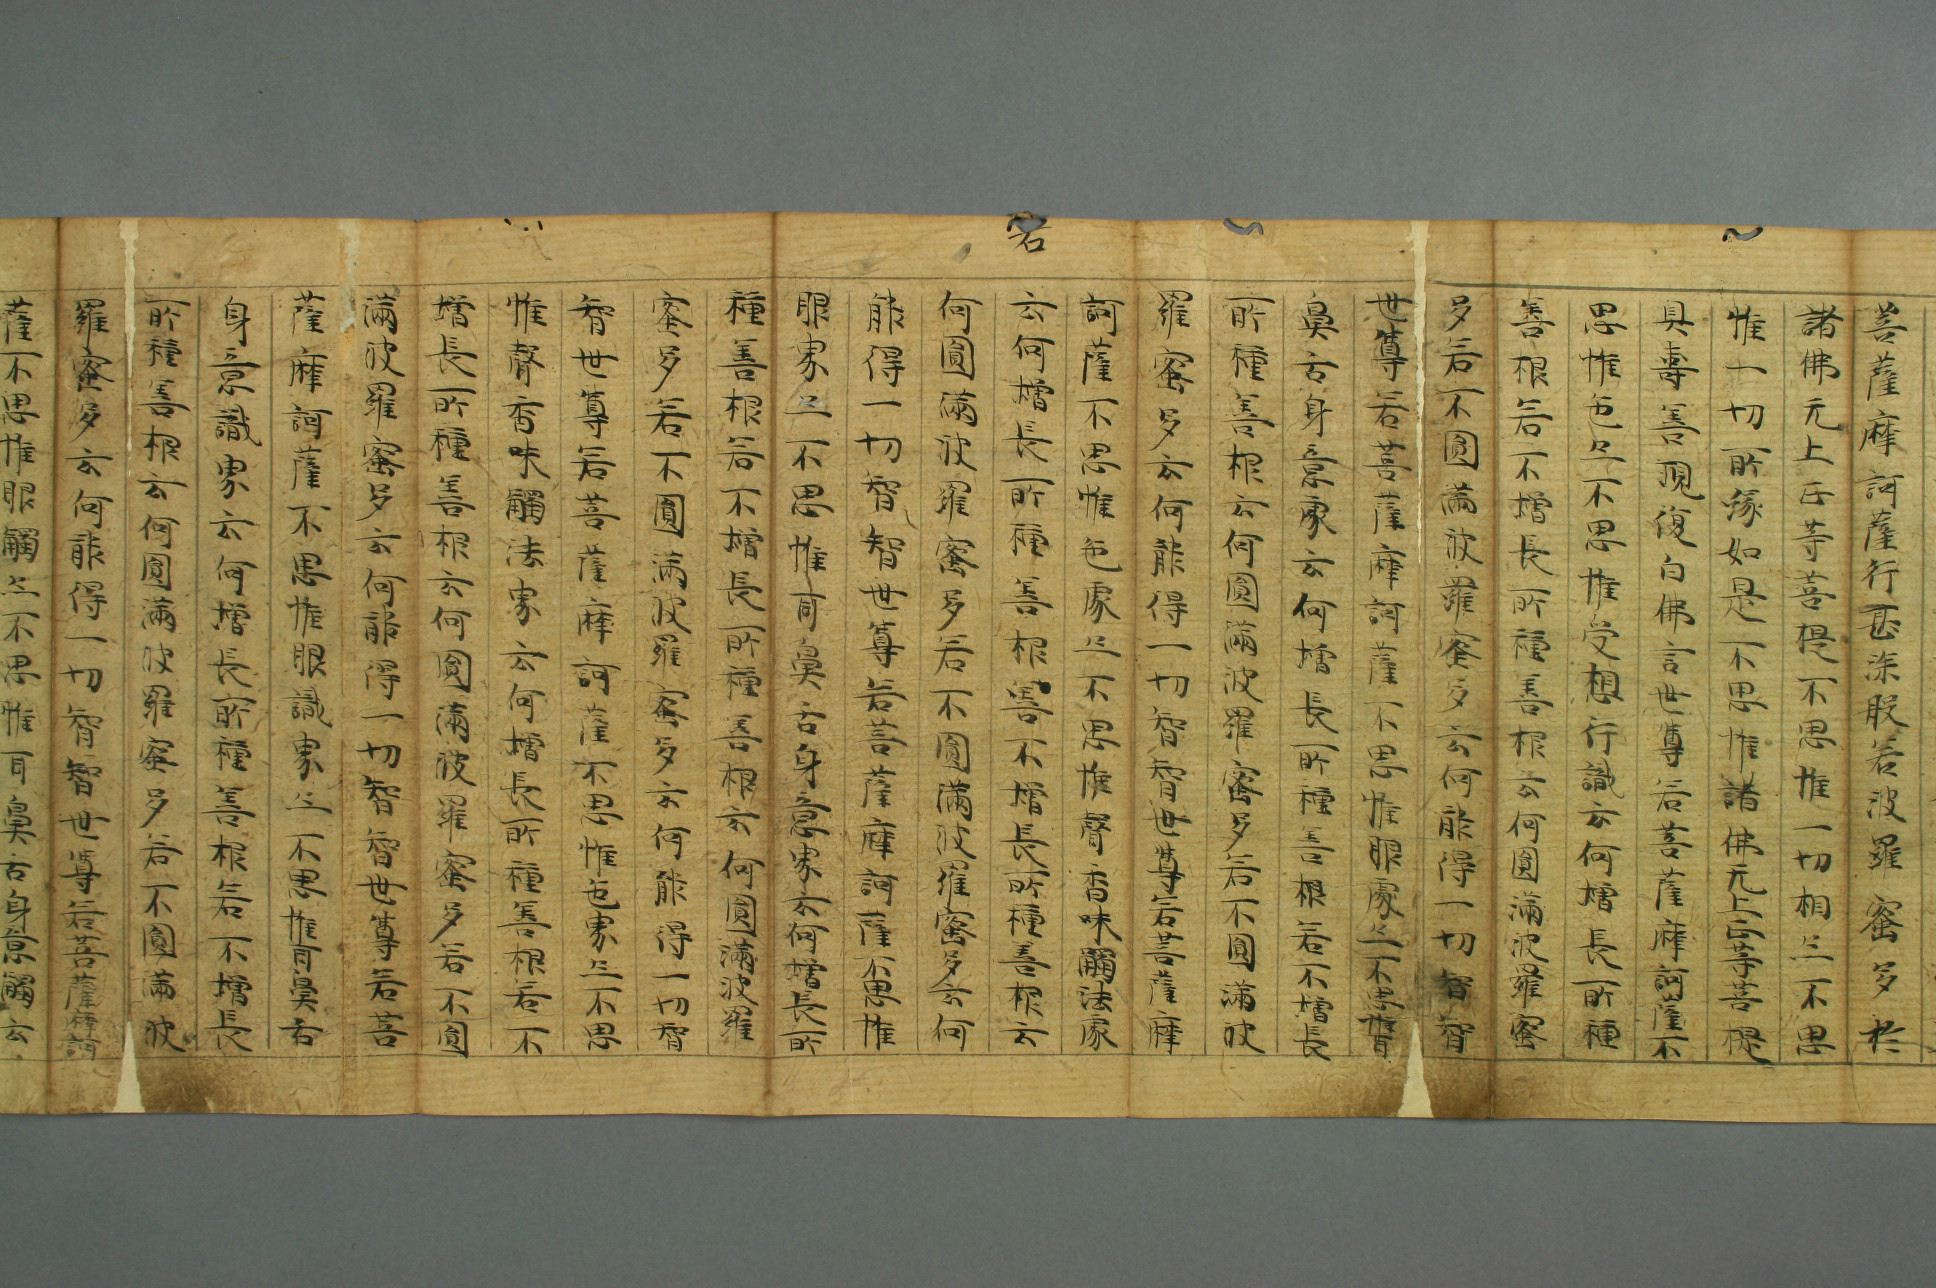 菩薩摩訶薩行甚深般若波羅蜜多於
諸佛无上正等菩提不思惟一切相亦不思
惟一切所緣如是不思惟諸佛无上正等菩提
具壽善現復白佛言世尊若菩薩摩訶薩不
思惟色亦不思惟受想行識云何增長所種
善根若不增長所種善根云何圓滿波羅蜜
多若不圓滿波羅蜜多云何能得一切智智
世尊若菩薩摩訶薩不思惟眼處亦不思惟耳
鼻舌身意處云何增長所種善根若不增長
所種善根云何圓滿波羅蜜多若不圓滿波
羅蜜多云何能得一切智智世尊若菩薩摩
訶薩不思惟色處亦不思惟聲香味觸法處
若
云何增長所種善根善不增長所種善根云
何圓滿波羅蜜多若不圓滿波羅蜜多云何
能得一切智智世尊若菩薩摩訶薩不思惟
眼界亦不思惟耳鼻舌身意界云何增長所
種善根若不增長所種善根云何圓滿波羅
蜜多若不圓滿波羅蜜多云何能得一切智
智世尊若菩薩摩訶薩不思惟色界亦不思
惟聲香味觸法界云何增長所種善根若不
增長所種善根云何圓滿波羅蜜多若不圓
滿波羅蜜多云何能得一切智智世尊若菩
薩摩訶薩不思惟眼識界亦不思惟耳鼻舌
身意識界云何增長所種善根若不增長
所種善根云何圓滿波羅蜜多若不圓滿波
羅蜜多云何能得一切智智世尊若菩薩摩訶
薩不思惟眼觸亦不思惟耳鼻舌身意觸云